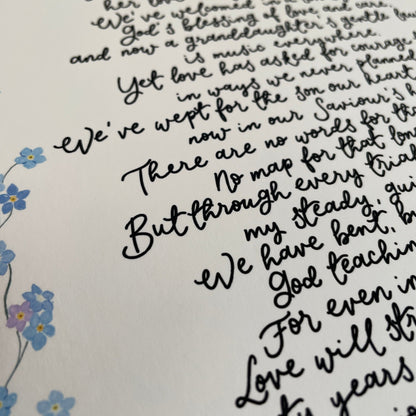 her
We've welcomed in
God's blessing of love and care,
and now a granddaughter's gentle
is music everywhere.
Yet love has asked for courage,
in ways we never planned
We've wept for the son our heart
now in our Saviour's h
There are no words for tha
No map for that lon
But through every trial
my steady, gui
We have bent, b
God teachin
For even in
Love will str
ty years